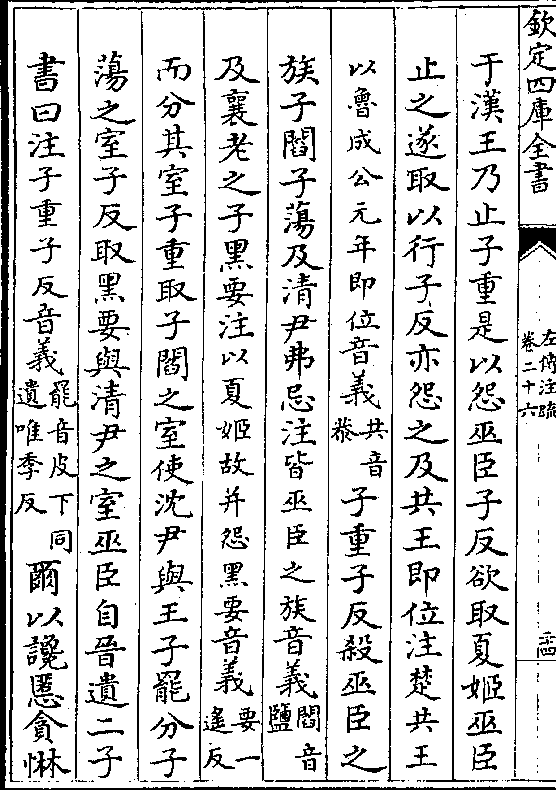 欽定四庫全書
左傳注疏
卷二十六
二十四
于漢王乃止子重是以怨巫臣子反欲取夏姬巫臣
止之遂取以行子反亦怨之及共王即位注楚共王
以魯成公元年即位音義共音恭子重子反殺巫臣之
族子閻子蕩及清尹弗忌注皆巫臣之族音義閻音鹽
及襄老之子黑要注以夏姬故并怨黑要音義要一遙反
而分其室子重取子閻之室使沈尹與王子罷分子
蕩之室子反取黑要與清尹之室巫臣自晉遺二子
書曰注子重子反音義罷音皮下同遺唯季反爾以讒慝貪惏